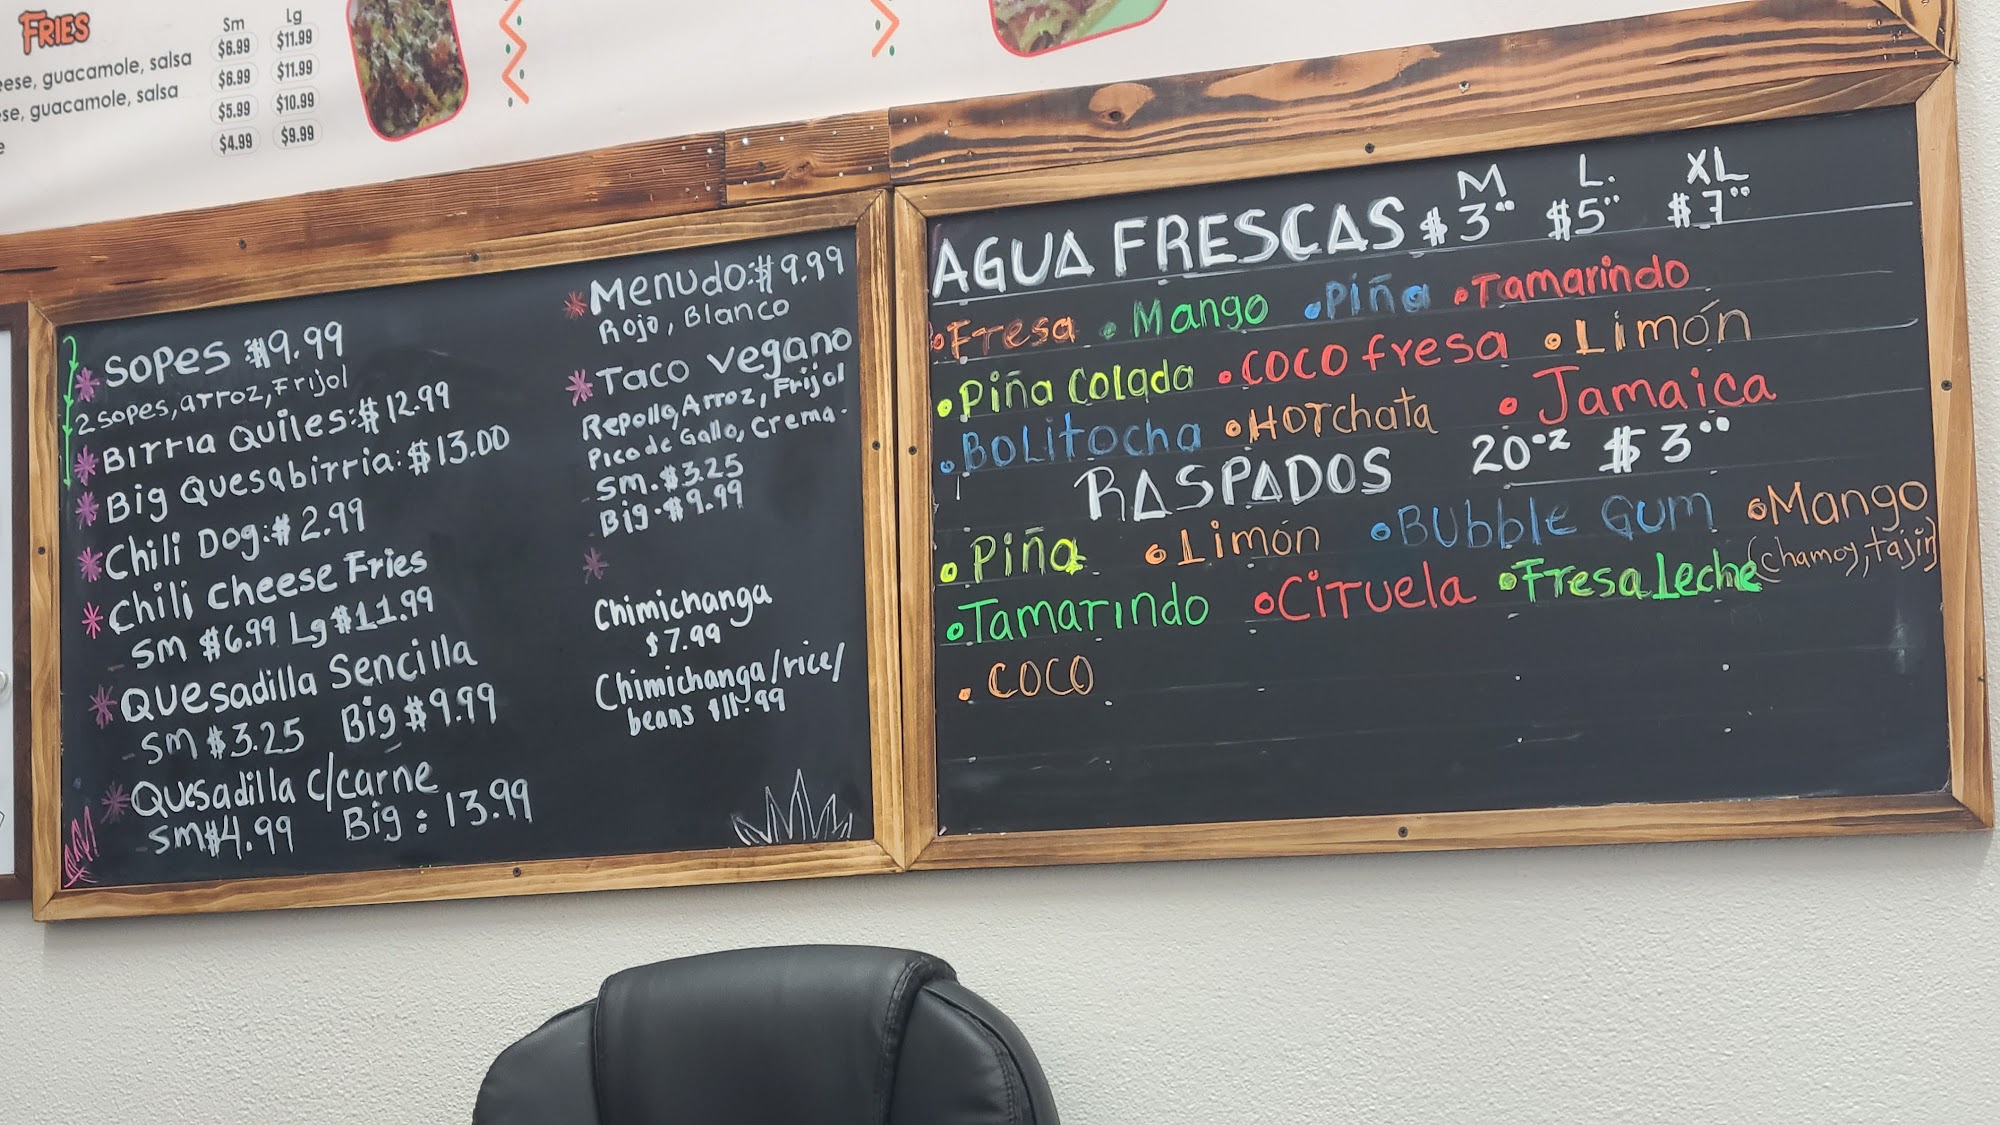 FRIES
Sm Lg
eese, guacamole, salsa $6.99 $11.99
se, guacamole, salsa $6.99 $11.99
$5.99 $10.99
e $4.99 $9.99
SOPES $9.99
2 sopes, arroz, Frijol
BIrrIa QuiIes: $12.99
Big Quesabirria: $13.00
Chili Dog: $2.99
Chili cheese Fries
Sm $6.99 Lg $11.99
QUesadilla Sencilla
Sm $3.25 Big $9.99
Quesadilla c/carne
Sm $4.99 Big: 13.99
Menudo: $9.99
Rojo, Blanco
Taco vegano
Repollo, Arroz, Frijol
Pico de Gallo, crema.
Sm. $3.25
Big. $9.99
Chimichanga
$7.99
Chimichanga/rice/
beans $11.99
M L. XL
AGUA FRESCAS $3°° $5°° $7°°
Fresa Mango Piña Tamarindo
Piña Colada COCO fresa Limón
BOLITOCHA HOrchata Jamaica
RASPADOS 20oz $3°°
Piña Limón BUbbLe GUM Mango
(chamoy, tajin)
Tamarindo CIruela Fresa Leche
COCO